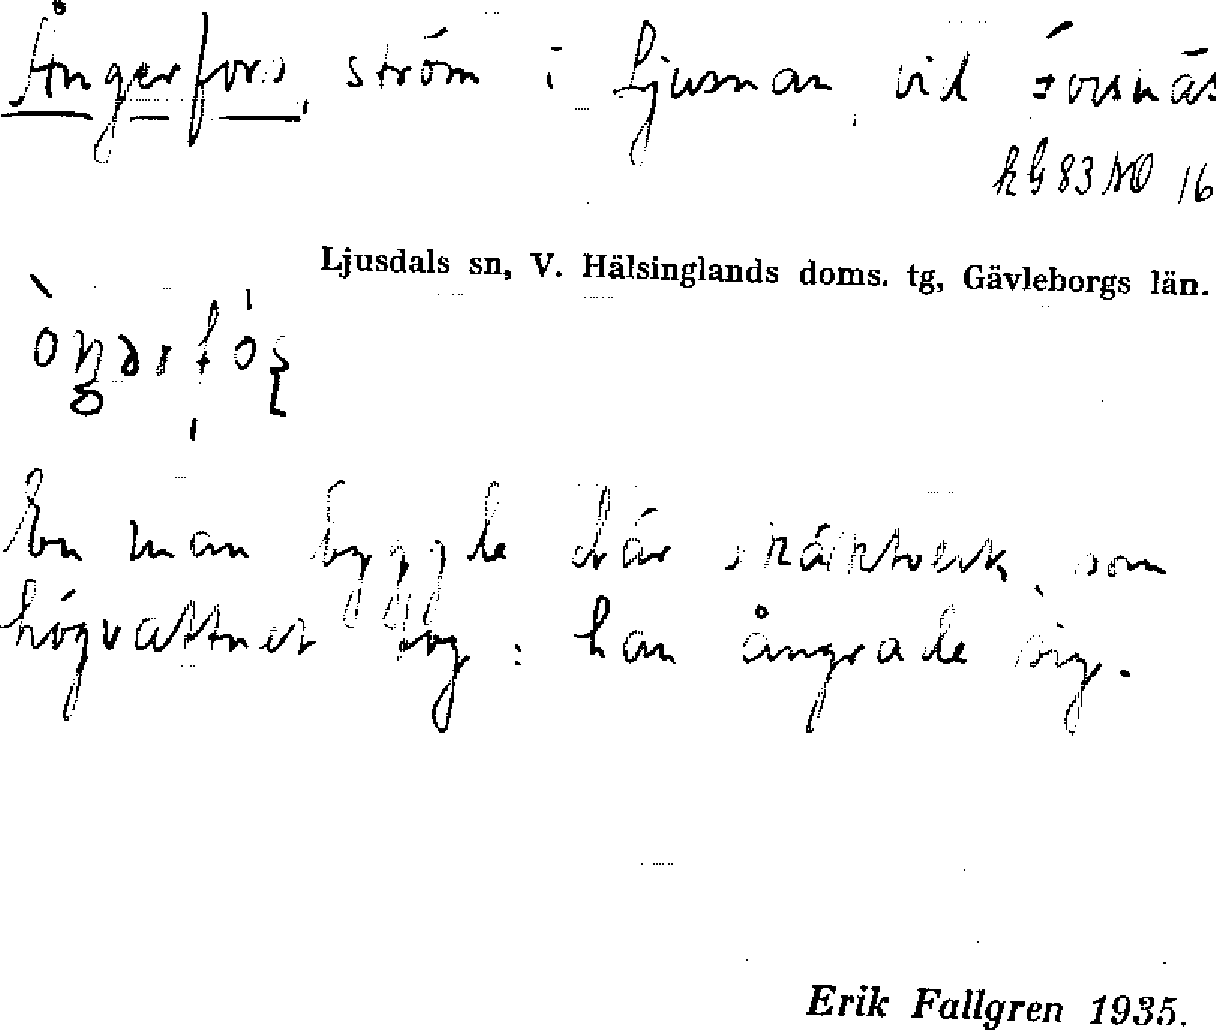 Ångerfors, ström i Ljusnan vid Forsnäs
hG 83 NO 16
Ljusdals sn, V. Hälsinglands doms. tg, Gävleborgs län.
En man byggde där skäktverk, som
högvattnet tog: han ångrade sig.
Erik Fallgren 1935.